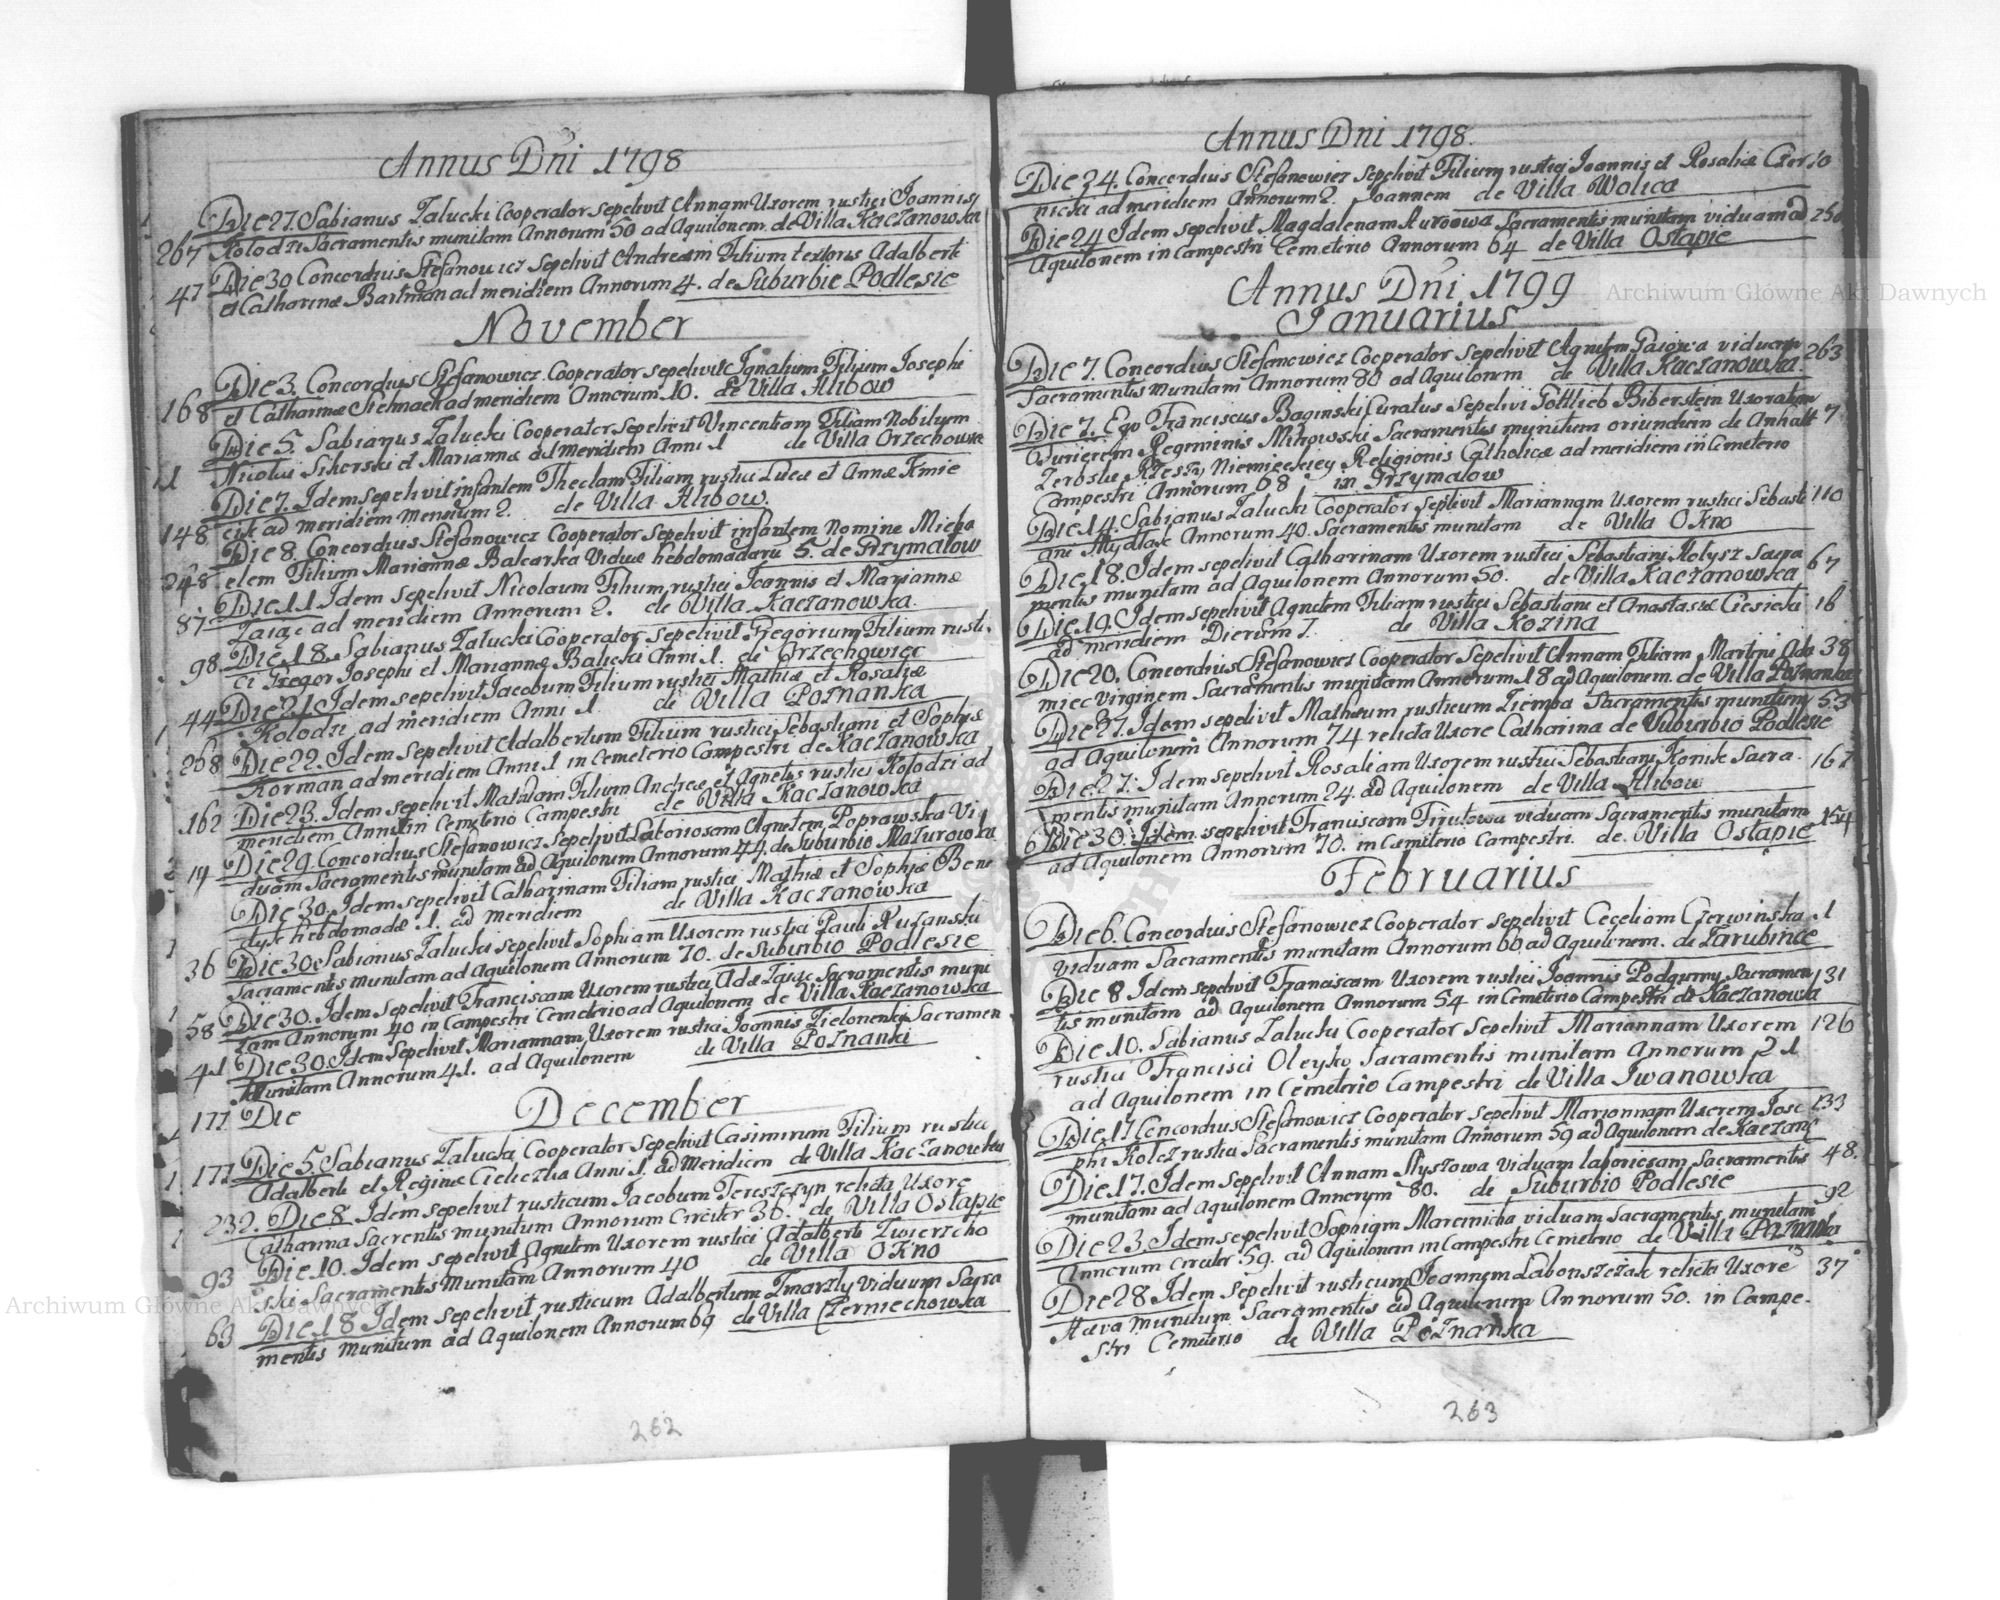 Annus Dni 1798
Die 27. Sabianus Zalucki Cooperator sepelivit Annam Uxorem rustici Joannis
267 Kolodzi Sacramentis munitam Annorum 50 ad Aquilonem de Villa Kaczanowka
Die 30 Concordius Stefanowicz Sepelivit Andream Filium textoris Adalberti
47 et Catharinæ Bartman ad meridiem Annorum 4. de Suburbie Podlesie
November
Die 3. Concordius Stefanowicz Cooperator sepelivit Ignatium Filium Josephi
168 et Catharinæ ad meridiem Annorum 10. de Villa Hlibow
Die 5. Sabianus Zalucki Cooperator Sepelivit Vincentiam Filiam Nobilium
1 Nicolai Sikorski et Mariannæ ad meridiem Anni 1 de Villa Orzechowka
Die 7. Idem sepelivit infantem Theclam Filiam rustici Lucæ et Annæ Kmie
148 cik ad meridiem mensium 2. de Villa Hlibow.
Die 8. Concordius Stefanowicz Cooperator Sepelivit infantem nomine Micha
248 elem Filium Mariannæ Balcarka Viduæ hebdomadaru 5. de Grzymalow
Die 11 Idem sepelivit Nicolaum Filium rustici Joannis et Mariannæ
87 Zaiac ad meridiem Annorum 2. de Villa Kaczanowka.
Die 18. Sabianus Zalucki Cooperator sepelivit Gregorium Filium rusti.
98 ci Gregor Josephi et Mariannæ Balicki Anni 1. de Orzechowiec
Die 21. Idem sepelivit Jacobum Filium rustici Mathiæ et Rosaliæ
44 Kolodzi ad meridiem Anni 1. de Villa Poznanka
Die 22. Idem sepelivit Adalbertum Filium rustici Sebastiani et Sophiæ
268 Korman ad meridiem Anni 1 in Cemeterio Campestri de Kaczanowka
Die 23. Idem sepelivit Filium Andreæ et Agnetis rustici Kolodzi ad
162 meridiem Anni 1 in Cemeterio Campestri de Villa Kaczanowka
Die 29. Concordius Stefanowicz Sepelivit Laboriosam Agnetem Poprawska Vi
19 duam Sacramentis munitam ad Aquilonem Annorum 44. de Suburbio Mazurowka
Die 30. Idem sepelivit Catharinam Filiam rustici Mathiæ et Sophiæ Bene
dyk hebdomadæ 1. ad meridiem de Villa Kaczanowka
Die 30 Sabianus Zalucki sepelivit Sophiam Uxorem rustici Pauli
36 Sacramentis munitam ad Aquilonem Annorum 70. de Suburbio Podlesie
Die 30. Idem sepelivit Franciscam Uxorem rustici Adæ Zaiac Sacramentis muni
58 tam Annorum 40 in Campestri Cemeterio ad Aquilonem de Villa Kaczanowka
Die 30. Idem Sepelivit Mariannam Uxorem rustici Joannis Zielonenki Sacramen
41 munitam Annorum 41. ad Aquilonem de Villa Poznanki
177 Die
December
Die 5. Sabianus Zalucki Cooperator Sepelivit Casimirum Filium rustici
177 Adalberti et Reginæ Anni 1. ad Meridiem de Villa Kaczanowka
Die 8. Idem sepelivit rusticum Jacobum relicta Uxore
232. Catharina Sacrentis munitum Annorum Circiter 30. de Villa Ostapie
Die 10. Idem sepelivit Agnetem Uxorem rustici Adalberti Zwierzcho
93 ski Sacramentis Munitam Annorum 40 de Villa Okno
Die 18 Idem sepelivit rusticum Adalbertum Zmarzly Viduum Sacra
63 mentis munitum ad Aquilonem Annorum 69 de Villa Czerniechowska
262
Annus Dni 1798.
Die 24. Concordius Stefanowicz Sepelivit Filium rustici Joannis et Rosaliæ Czer 10
nicki ad meridiem Annorum 2. Joannem de Villa Wolica
Die 24 Idem sepelivit Magdalenam Sacramentis munitam viduam ad 250
Aquilonem in Campestri Cemeterio Annorum 64 de Villa Ostapie
Annus Dni 1799
Ianuarius
Die 7. Concordius Stefanowicz Cooperator Sepelivit Agnetem Gaiowa viduam 263
Sacramentis munitam Annorum 80 ad Aquilonem de Villa Kaczanowka.
Die 7. Ego Franciscus Baginski Curatus Sepelivi Gottlieb Biberstein Uxoratum 7
Sacramentis munitum oriundum de Anhalt
Zerbskie Rzeszy Niemieckiey Religionis Catholicæ ad meridiem in Cemeterio
Campestri Annorum 68 in Grzymalow
Die 14. Sabianus Zalucki Cooperator sepelivit Mariannam Uxorem rustici Sebasti 110
ani Mydlak Annorum 40. Sacramentis munitam de Villa Okno
Die 18. Idem sepelivit Catharinam Uxorem rustici Sebastiani Holysz Sacra 67
mentis munitam ad Aquilonem Annorum 50. de Villa Kaczanowka
Die 19. Idem sepelivit Agnetem Filiam rustici Sebastiani et Anastasiæ Ciesicki 16
ad meridiem Dierum 7. de Villa Kozina
Die 20. Concordius Stefanowicz Cooperator Sepelivit Annam Filiam Martini Ada 38
miec Virginem Sacramentis munitam Annorum 18 ad Aquilonem. de Villa Poznanka
Die 27. Idem sepelivit Matheum rusticum Ziemba Sacramentis munitum 53
ad Aquilonem Annorum 74 relicta Uxore Catharina de Suburbio Podlesie
Die 27. Idem sepelivit Rosaliam Uxorem rustici Sebastiani Konik Sacra. 167
mentis munitam Annorum 24. ad Aquilonem de Villa Hlibow
Die 30. Idem sepelivit Franciscam viduam Sacramentis munitam 154
ad Aquilonem Annorum 70. in Cemeterio Campestri. de Villa Ostapie
Februarius
Die 6. Concordius Stefanowicz Cooperator sepelivit Ceceliam Czerwinska 1
Viduam Sacramentis munitam Annorum 60 ad Aquilonem. de Zarubince
Die 8 Idem sepelivit Franciscam Uxorem rustici Joannis Podgurny Sacramen 131
tis munitam ad Aquilonem Annorum 54 in Cemeterio Campestri de Kaczanowka
Die 10. Sabianus Zalucki Cooperator Sepelivit Mariannam Uxorem 126
rustici Francisci Oleyko Sacramentis munitam Annorum 21
ad Aquilonem in Cemeterio Campestri de Villa Iwanowka
Die 17 Concordius Stefanowicz Cooperator sepelivit Mariannam Uxorem Jose 133
phi Kolcz rustici Sacramentis munitam Annorum 59 ad Aquilonem de Kaczano
Die 17. Idem Sepelivit Annam Slyszowa viduam laboriosam Sacramentis 48.
munitam ad Aquilonem Annorum 80. de Suburbio Podlesie
Die 23. Idem sepelivit Sophiam Marcinicha viduam Sacramentis munitam 92
Annorum circiter 59. ad Aquilonem in Campestri Cemeterio de Villa Poznanka
Die 28 Idem Sepelivit rusticum Joannem Labonszczak relicta Uxore 37
munitum Sacramentis ad Aquilonem Annorum 50. in Campe-
stri Cemeterio de Villa Poznanka
263
Archiwum Główne Akt Dawnych
Archiwum Główne Akt Dawnych